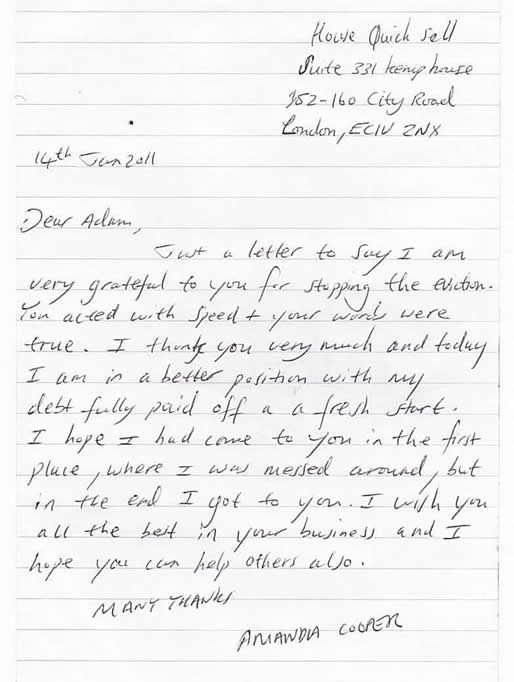 House Quick Sell
Suite 331 kemp house
152-160 City Road
London, EC1V 2NX
14th Jan 2011
Dear Adam,
Just a letter to say I am
very grateful to you for stopping the eviction.
You acted with speed + your words were
true. I thank you very much and today
I am in a better position with my
debt fully paid off a a fresh start.
I hope I had come to you in the first
place, where I was messed around, but
in the end I got to you. I wish you
all the best in your business and I
hope you can help others also.
MANY THANKS
AMANDA COOPER